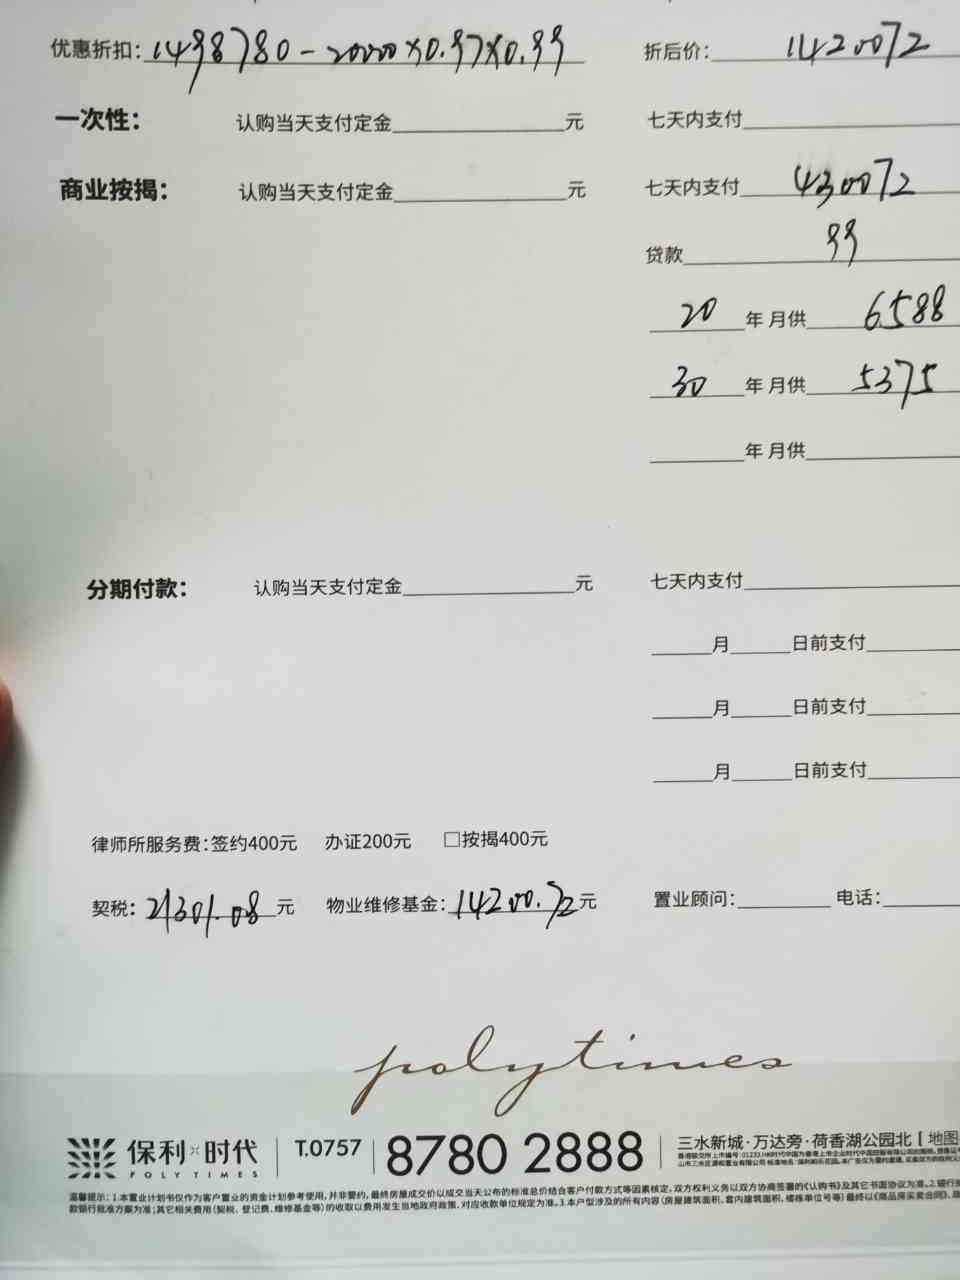 优惠折扣：1498780-20000×0.97×0.99 折后价：1420072
一次性： 认购当天支付定金 元 七天内支付
商业按揭： 认购当天支付定金 元 七天内支付 430072
贷款 99
20 年 月供 6588
30 年 月供 5375
年 月供
分期付款： 认购当天支付定金 元 七天内支付
月 日前支付
月 日前支付
月 日前支付
律师所服务费：签约400元 办证200元 □按揭400元
契税：21301.08 元 物业维修基金：14200.72 元 置业顾问： 电话：
polytimes
保利×时代 T.0757 8780 2888 三水新城·万达旁·荷香湖公园北 [ 地图
POLY TIMES
温馨提示：1.本置业计划书仅作为客户置业的资金计划参考使用，并非誓约，最终房屋成交价以成交当天公布的标准总价结合客户付款方式等因素核定，双方权利义务以双方协商签署的《认购书》及其它书面协议为准。2.银行
款银行批准方案为准；其它相关费用（契税、登记费、维修基金等）的收取以费用发生当地政府政策、对应收款单位规定为准。3.本户型涉及的所有内容（房屋建筑面积、套内建筑面积、楼栋单位号等）最终以《商品房买卖合同》